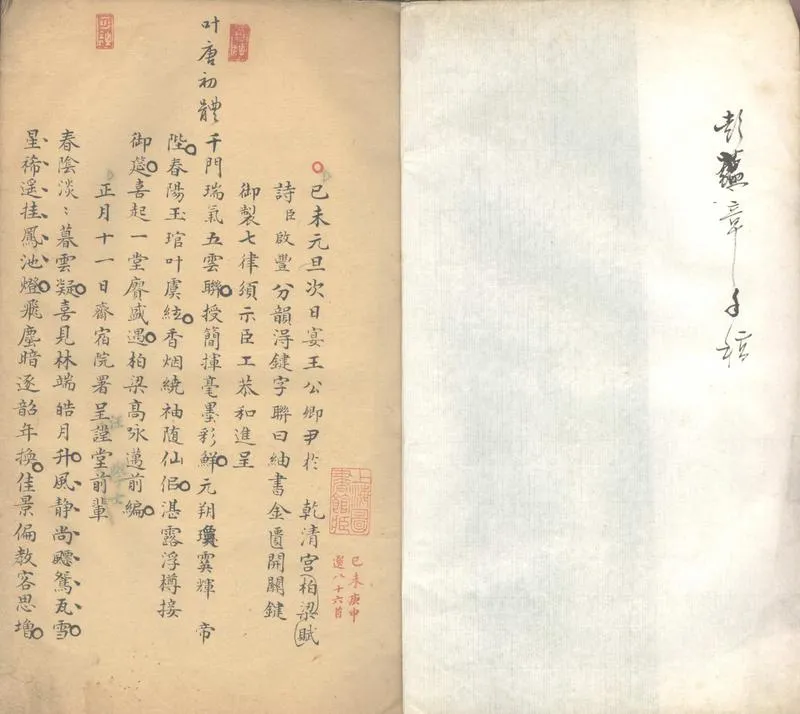 彭蘊章手稿
己未元旦次日宴王公卿尹於 乾清宮柏梁賦
詩臣啟豐分韻淂鍵字聯曰紬書金匱開關鍵
御製七律須示臣工恭和進呈
叶唐初體
千門瑞氣五雲聯授簡揮毫墨彩鮮元朔瓊霙輝 帝
陛春陽玉琯叶虞絃香烟繞袖随仙侣湛露浮樽接
御筵喜起一堂賡盛遇柏梁高咏邁前編
正月十一日齋宿院署呈謹堂前輩
春陰淡〻暮雲凝喜見林端皓月升風静尚飄鴛瓦雪
星稀遥挂鳳池燈飛塵暗逐韶年換佳景偏教客思增
上海圖書館藏
己未庚申
選八十六首